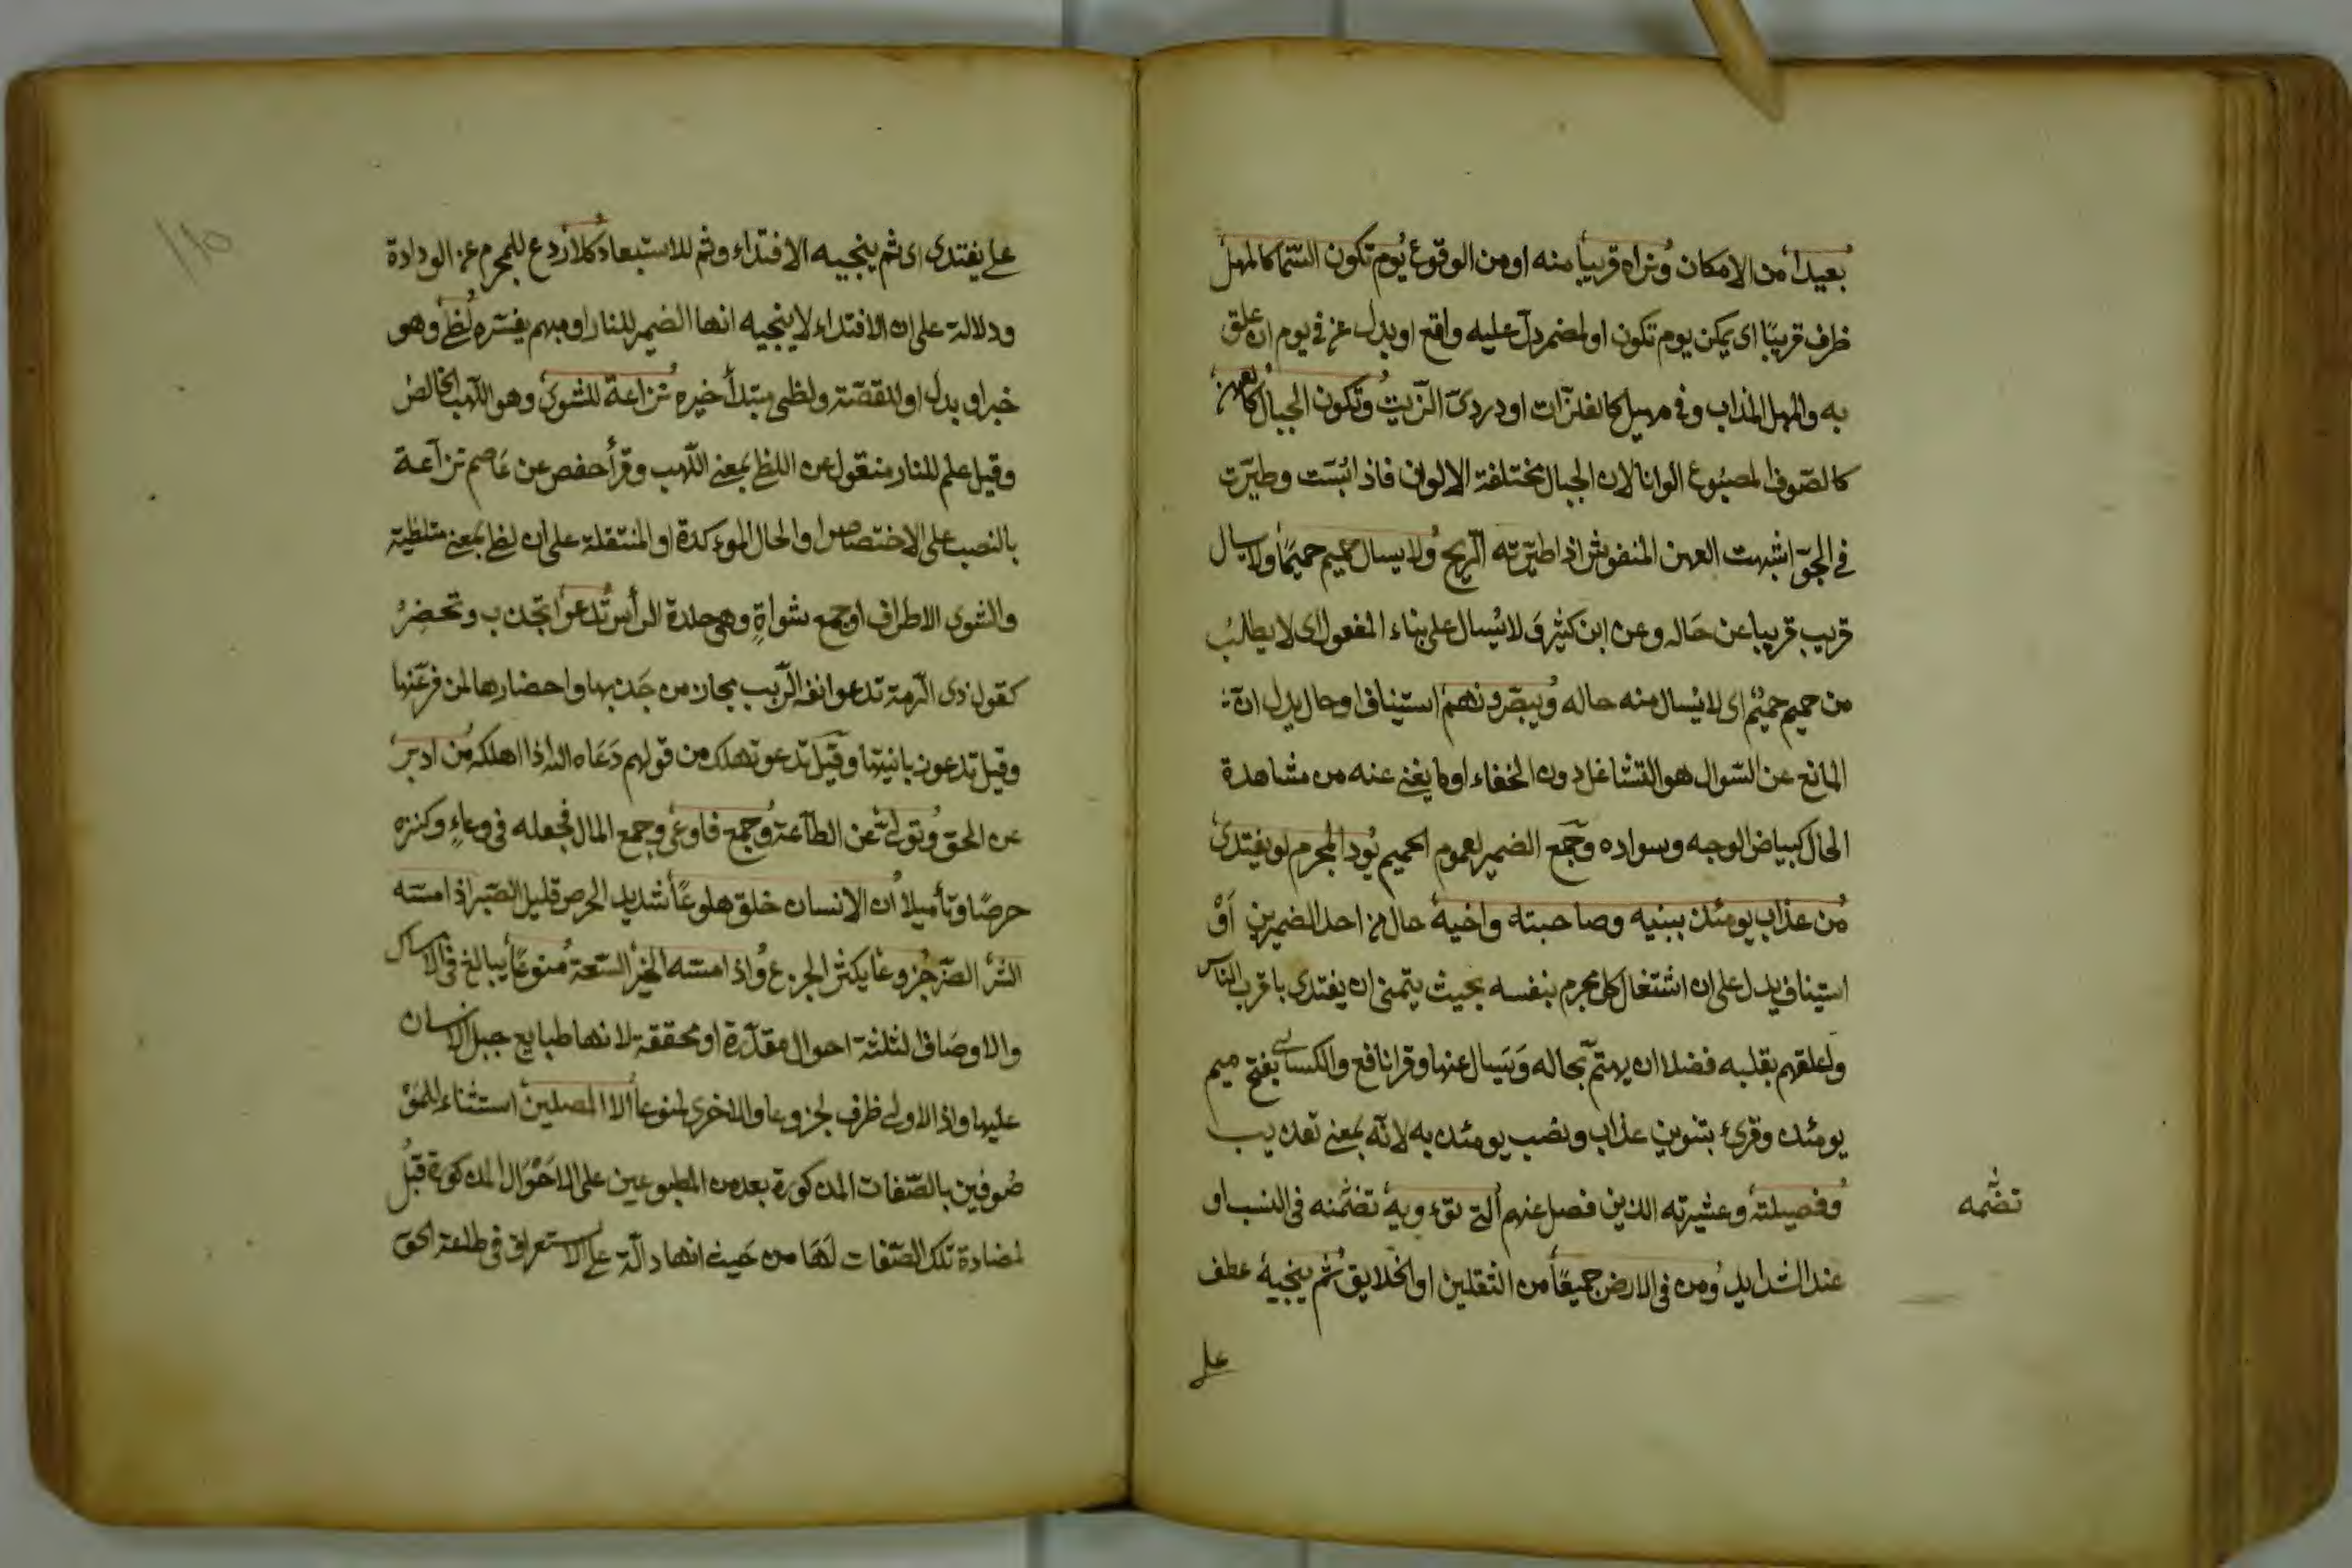 بعيدا من الامكان ونراه قريبا منه او من الوقوع يوم تكون السما كالمهل
ظرف قريبًا اى يمكن يوم تكون او لمضمر دلّ عليه واقع او بدل عن فى يوم ان علق
به والمهل المذاب وفى مهيل كالفلزّات او دردىّ الزّيت وتكون الجبال كالعهن
كالصّوف المصبوع الوانا لان الجبال مختلفة الالوان فاذا بُسّت وطيّرت
فى الجوّ اشبهت العهن المنفوش اذا طيّرته الرّيح ولا يسال حميم حميمًا ولا يسال
قريب قريبا عن حاله وعن ابن كثير وَلا يُسال على بناء المفعول اى لا يطلبُ
من حميم حميمٌ اى لا يُسال منه حاله ويبصّرونهم استيناف او حال يدل ان
المانع عن السّوال هو التشاغل دون الخفاء او ما يغنى عنه من مشاهدة
الحال كبياض الوجه وسواده وجَمع الضمير لعموم الحميم يود المجرم لو يفتدى
من عذاب يومئذ ببنيه وصاحبته واخيه حال من احد الضميرين اَوْ
استيناف يدل على ان اشتغال كل مجرم بنفسه بحيث يتمنى ان يفتدى باقرب الناس
واعلقهم بقلبه فضلا ان يهتمّ بحاله وَيَسال عنها وقرا نافع والكسائى بفتح ميم
يومئذ وقرئ بتنوين عذاب ونصب يومئذ به لانّه بمعنى تعذيب
وفصيلته وعشيرته الذين فصل عنهم التى تؤويه تضمّنه فى النسب او
تضمّه
عند الشدايد ومن فى الارض جميعًا من الثقلين او الخلايق ثم ينجيه عطف
على
على يفتدى اى ثم ينجيه الافتداء وثم للاستبعاد كلا ردع للمجرم عن الودادة
ودلالة على ان الافتداء لا ينجيه انها الضمير للنار او مبهم يفسّره لظى وهو
خبر او بدل او للقصّة ولظى مبتدأ خبره نزاعة للشوى وهو اللّهب الخالصُ
وقيل علم للنار منقول عن اللظى بمعنى اللّهب وقرأ حفص عن عَاصم نزاعة
بالنصب على الاختصاص او الحال الموءكدة او المنتقلة على ان لظى بمعنى متلظية
والشوى الاطراف او جمع شواةٍ وهى جلدة الرأس تدعوا تجذب وتحضِرُ
كقول ذى الرّمة تدعوا انفه الرّبب مجاز من جَذبها واحضارها لمن فرّعنها
وقيل تدعو زبانيتها وقيل تدعو تهلك من قولهم دَعَاه الله اذا اهلكه من ادبر
عن الحق وتولّى عن الطّاعة وجمع فاوعى وجمع المال فجعله فى وعاءٍ وكنزه
حرصًا وتأميلا ان الانسان خلق هلوعًا شديد الحرص قليل الصّبر اذا مسّه
الشر الضرّ جزوعا يكثر الجزع واذا مسّه الخير السّعة منوعًا يبالغ فى الامساك
والاوصَاف الثلثة احوال مقدّرة او محققة لانها طبايع جبل الانسان
عليها واذا الاولى ظرف لجزوعا والاخرى لمنوعا الا المصلين استثناء للمَوْ
صُوفين بالصّفات المذكورة بعد من المطبوعين على الاحْوَال المذكورة قبلُ
لمضادة تلك الصّفات لَهَا من حَيث انها دالّة على الاستغراق فى طاعة الحق